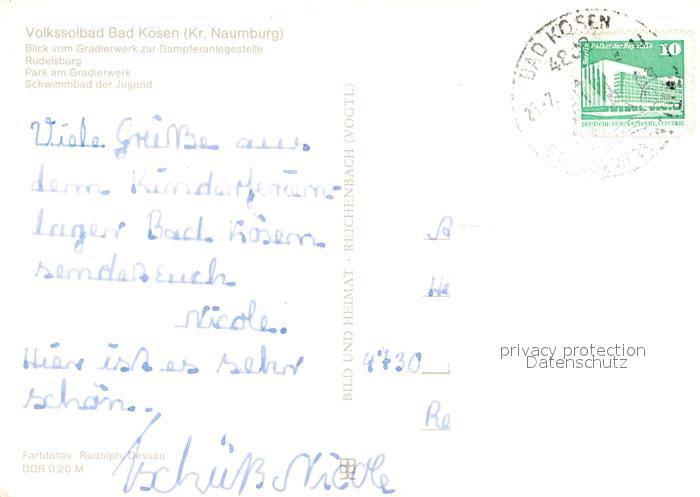 Volkssolbad Bad Kösen (Kr. Naumburg)
Blick vom Gradierwerk zur Dampferanlegestelle
Rudelsburg
Park am Gradierwerk
Schwimmbad der Jugend
BAD KÖSEN
Berlin Palast der Republik 10
DEUTSCHE DEMOKRATISCHE REPUBLIK
Viele Grüße aus
dem Kinderferien-
lager Bad Kösen
sendet Euch
Nicole.
Hier ist es sehr
schön.
Tschüß Nicole
BILD UND HEIMAT · REICHENBACH (VOGTL)
A
He
4730
Re
privacy protection
Datenschutz
Farbfotos: Rudolph, Dessau
DDR 0,20 M